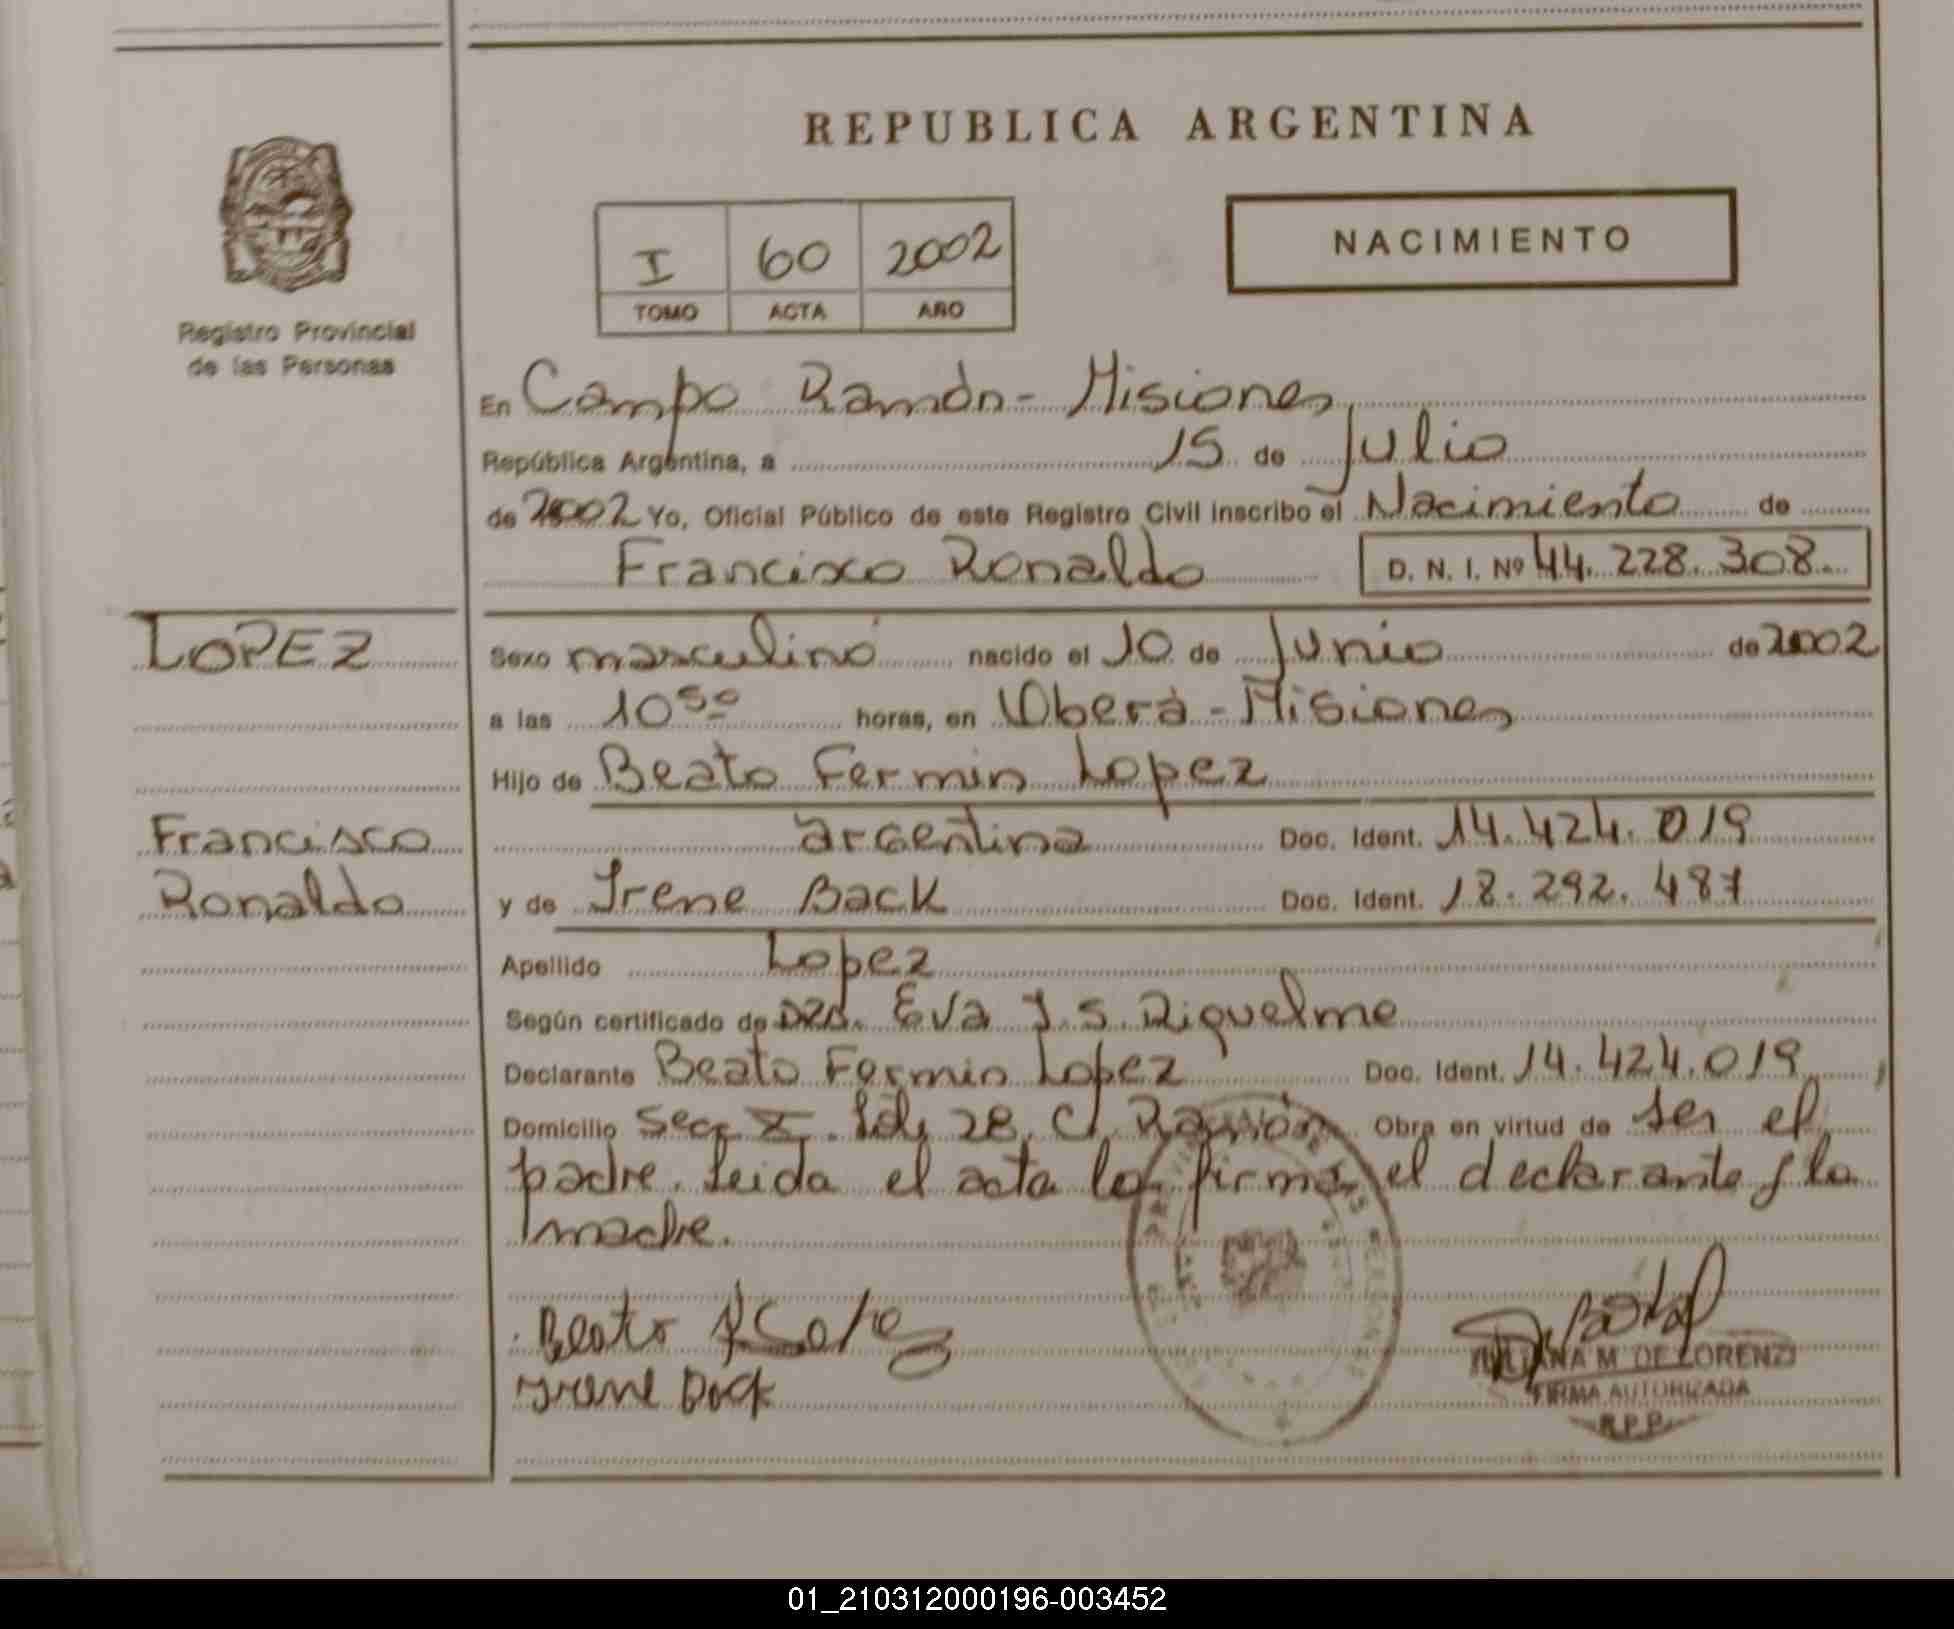 REPUBLICA ARGENTINA
Registro Provincial
de las Personas
I 60 2002
TOMO ACTA AÑO
NACIMIENTO
En Campo Ramón - Misiones
República Argentina, a 15 de Julio
de 2002 Yo, Oficial Público de este Registro Civil inscribo el Nacimiento de
Francisco Ronaldo D. N. I. Nº 44.228.308
LOPEZ
Francisco
Ronaldo
Sexo masculino nacido el 10 de Junio de 2002
a las 10 50 horas, en Oberá - Misiones
Hijo de Beato Fermin Lopez
argentina Doc. Ident. 14.424.019
y de Irene Back Doc. Ident. 18.292.487
Apellido Lopez
Según certificado de Dra. Eva J. S. Riquelme
Declarante Beato Fermin Lopez Doc. Ident. 14.424.019
Domicilio Secc X. 28. C. Ramón Obra en virtud de ser el
padre. Leida el acta la firma el declarante y la
madre.
Beato
Irene Back
M DE LORENZI
FIRMA AUTORIZADA
R.P.P.
01_210312000196-003452